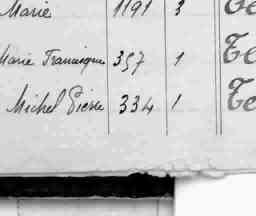 Marie 1191 3 Te
Marie Francisque 357 1 Te
Michel Pierre 334 1 Te